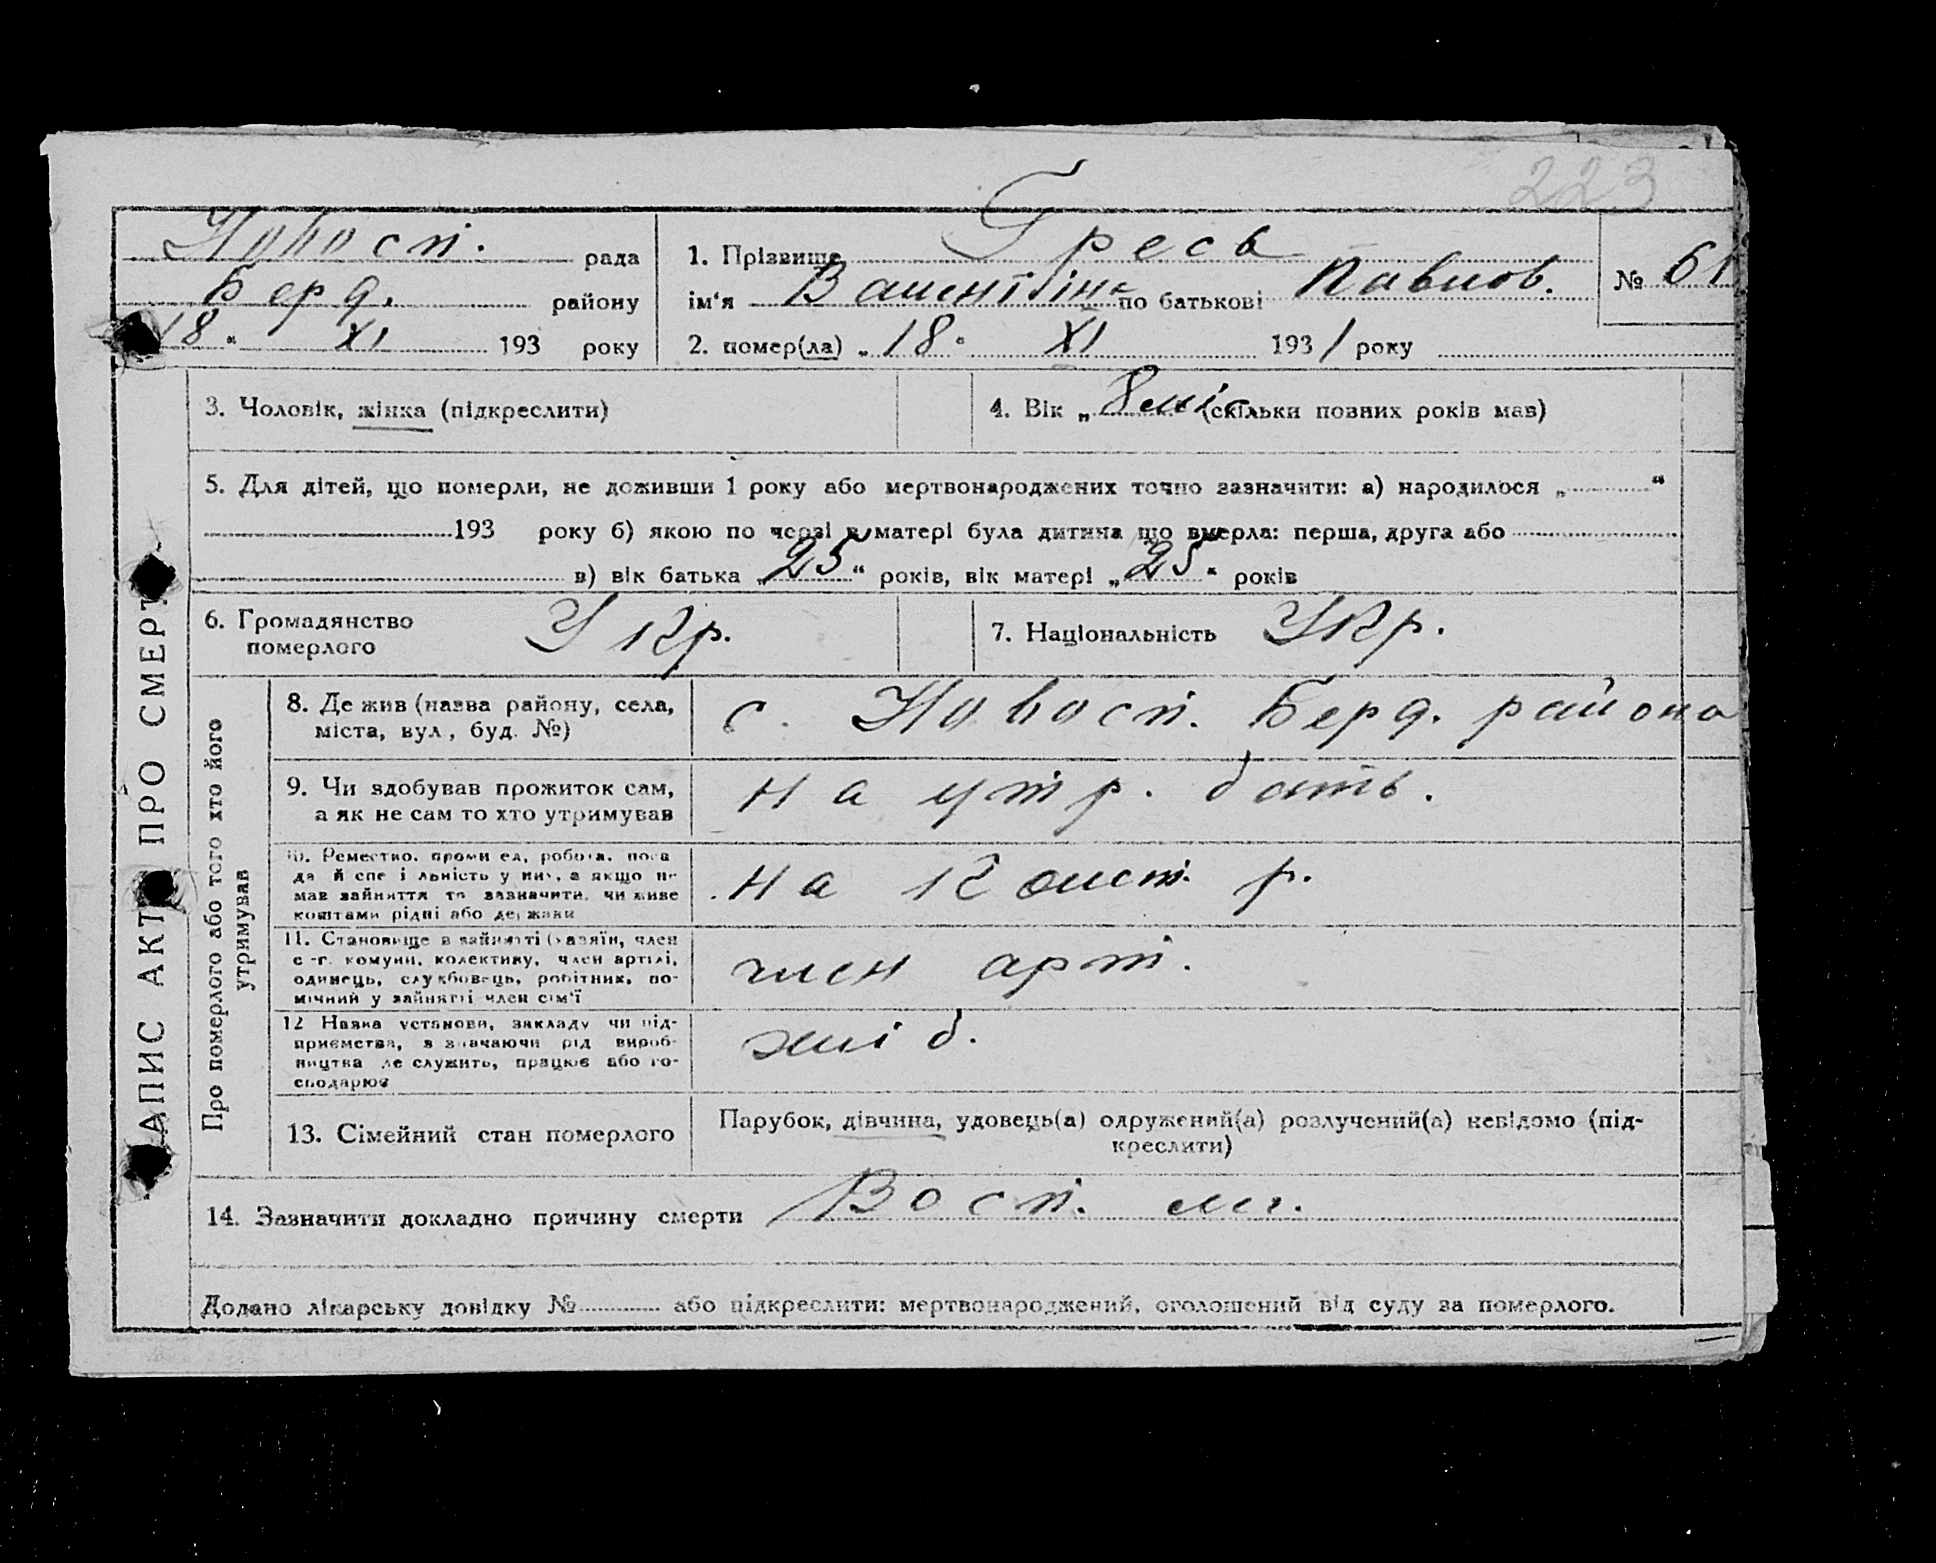 223
Новосп. рада
Берд. району
18 " XI 193 року
1. Прізвище Гресь
ім'я Валентіна по батькові Павлов.
№ 61
2. помер(ла) „ 18 " XI 1931 року
ЗАПИС АКТУ ПРО СМЕРТЬ
3. Чоловік, жінка (підкреслити)
4. Вік „ 8 міс (скільки повних років мав)
5. Для дітей, що померли, не доживши 1 року або мертвонароджених точно зазначити: а) народилося „ “
193 року б) якою по черзі в матері була дитина що вмерла: перша, друга або
в) вік батька „ 25 “ років, вік матері „ 25 “ років
6. Громадянство
померлого Укр.
7. Національність Укр.
Про померлого або того хто його
утримував
8. Де жив (назва району, села,
міста, вул, буд. №)
с. Новосп. Берд. района
9. Чи здобував прожиток сам,
а як не сам то хто утримував
на утр. бать.
10. Ремество, промисел, робота, поса
да й спеціальність у них, а якщо не
мав зайняття то зазначити, чи живе
коштами рідні або держави
на колст. р.
11. Становище в зайнятті (хазяїн, член
с-г. комуни, колективу, член артілі,
одинець, службовець, робітник, по-
мічний у зайнятті член сім'ї
член арт.
12 Назва установи, закладу чи під-
приємства, зазначаючи рід вироб-
ництва де служить, працює або го-
сподарює
хліб.
13. Сімейний стан померлого
Парубок, дівчина, удовець(а) одружений(а) розлучений(а) невідомо (під-
креслити)
14. Зазначити докладно причину смерти Восп. лег.
Додано лікарську довідку № або підкреслити: мертвонароджений, оголошений від суду за померлого.